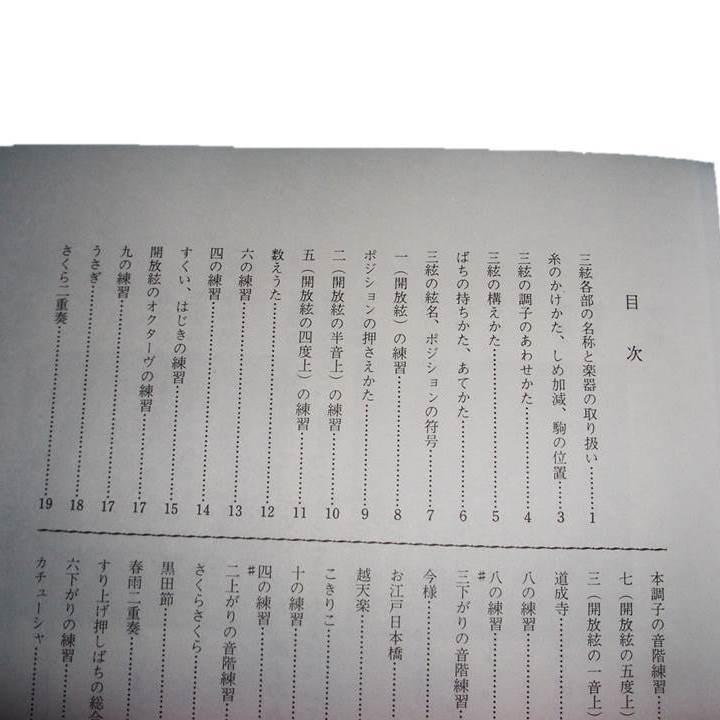 目次
三絃各部の名称と楽器の取り扱い……1
糸のかけかた、しめ加減、駒の位置……3
三絃の調子のあわせかた……4
三絃の構えかた……5
ばちの持ちかた、あてかた……6
三絃の絃名、ポジションの符号……7
一（開放絃）の練習……8
ポジションの押さえかた……9
二（開放絃の半音上）の練習……10
五（開放絃の四度上）の練習……11
数えうた……12
六の練習……13
四の練習……14
すくい、はじきの練習……15
開放絃のオクターヴの練習……17
九の練習……17
うさぎ……18
さくら二重奏……19
本調子の音階練習
七（開放絃の五度上）
三（開放絃の一音上）
道成寺……
八の練習……
♯八の練習……
三下がりの音階練習……
今様……
お江戸日本橋
越天楽……
こきりこ……
十の練習……
♯四の練習……
二上がりの音階練習……
さくらさくら……
黒田節……
春雨二重奏……
すり上げ押しばちの総合
六下がりの練習……
カチューシャ……